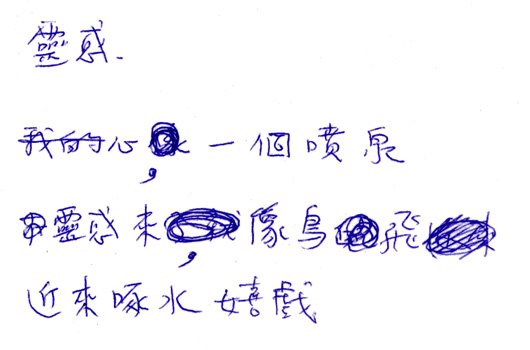 靈惑.
我的心，一個噴泉
靈惑來，像鳥飛
近來啄水嬉戲